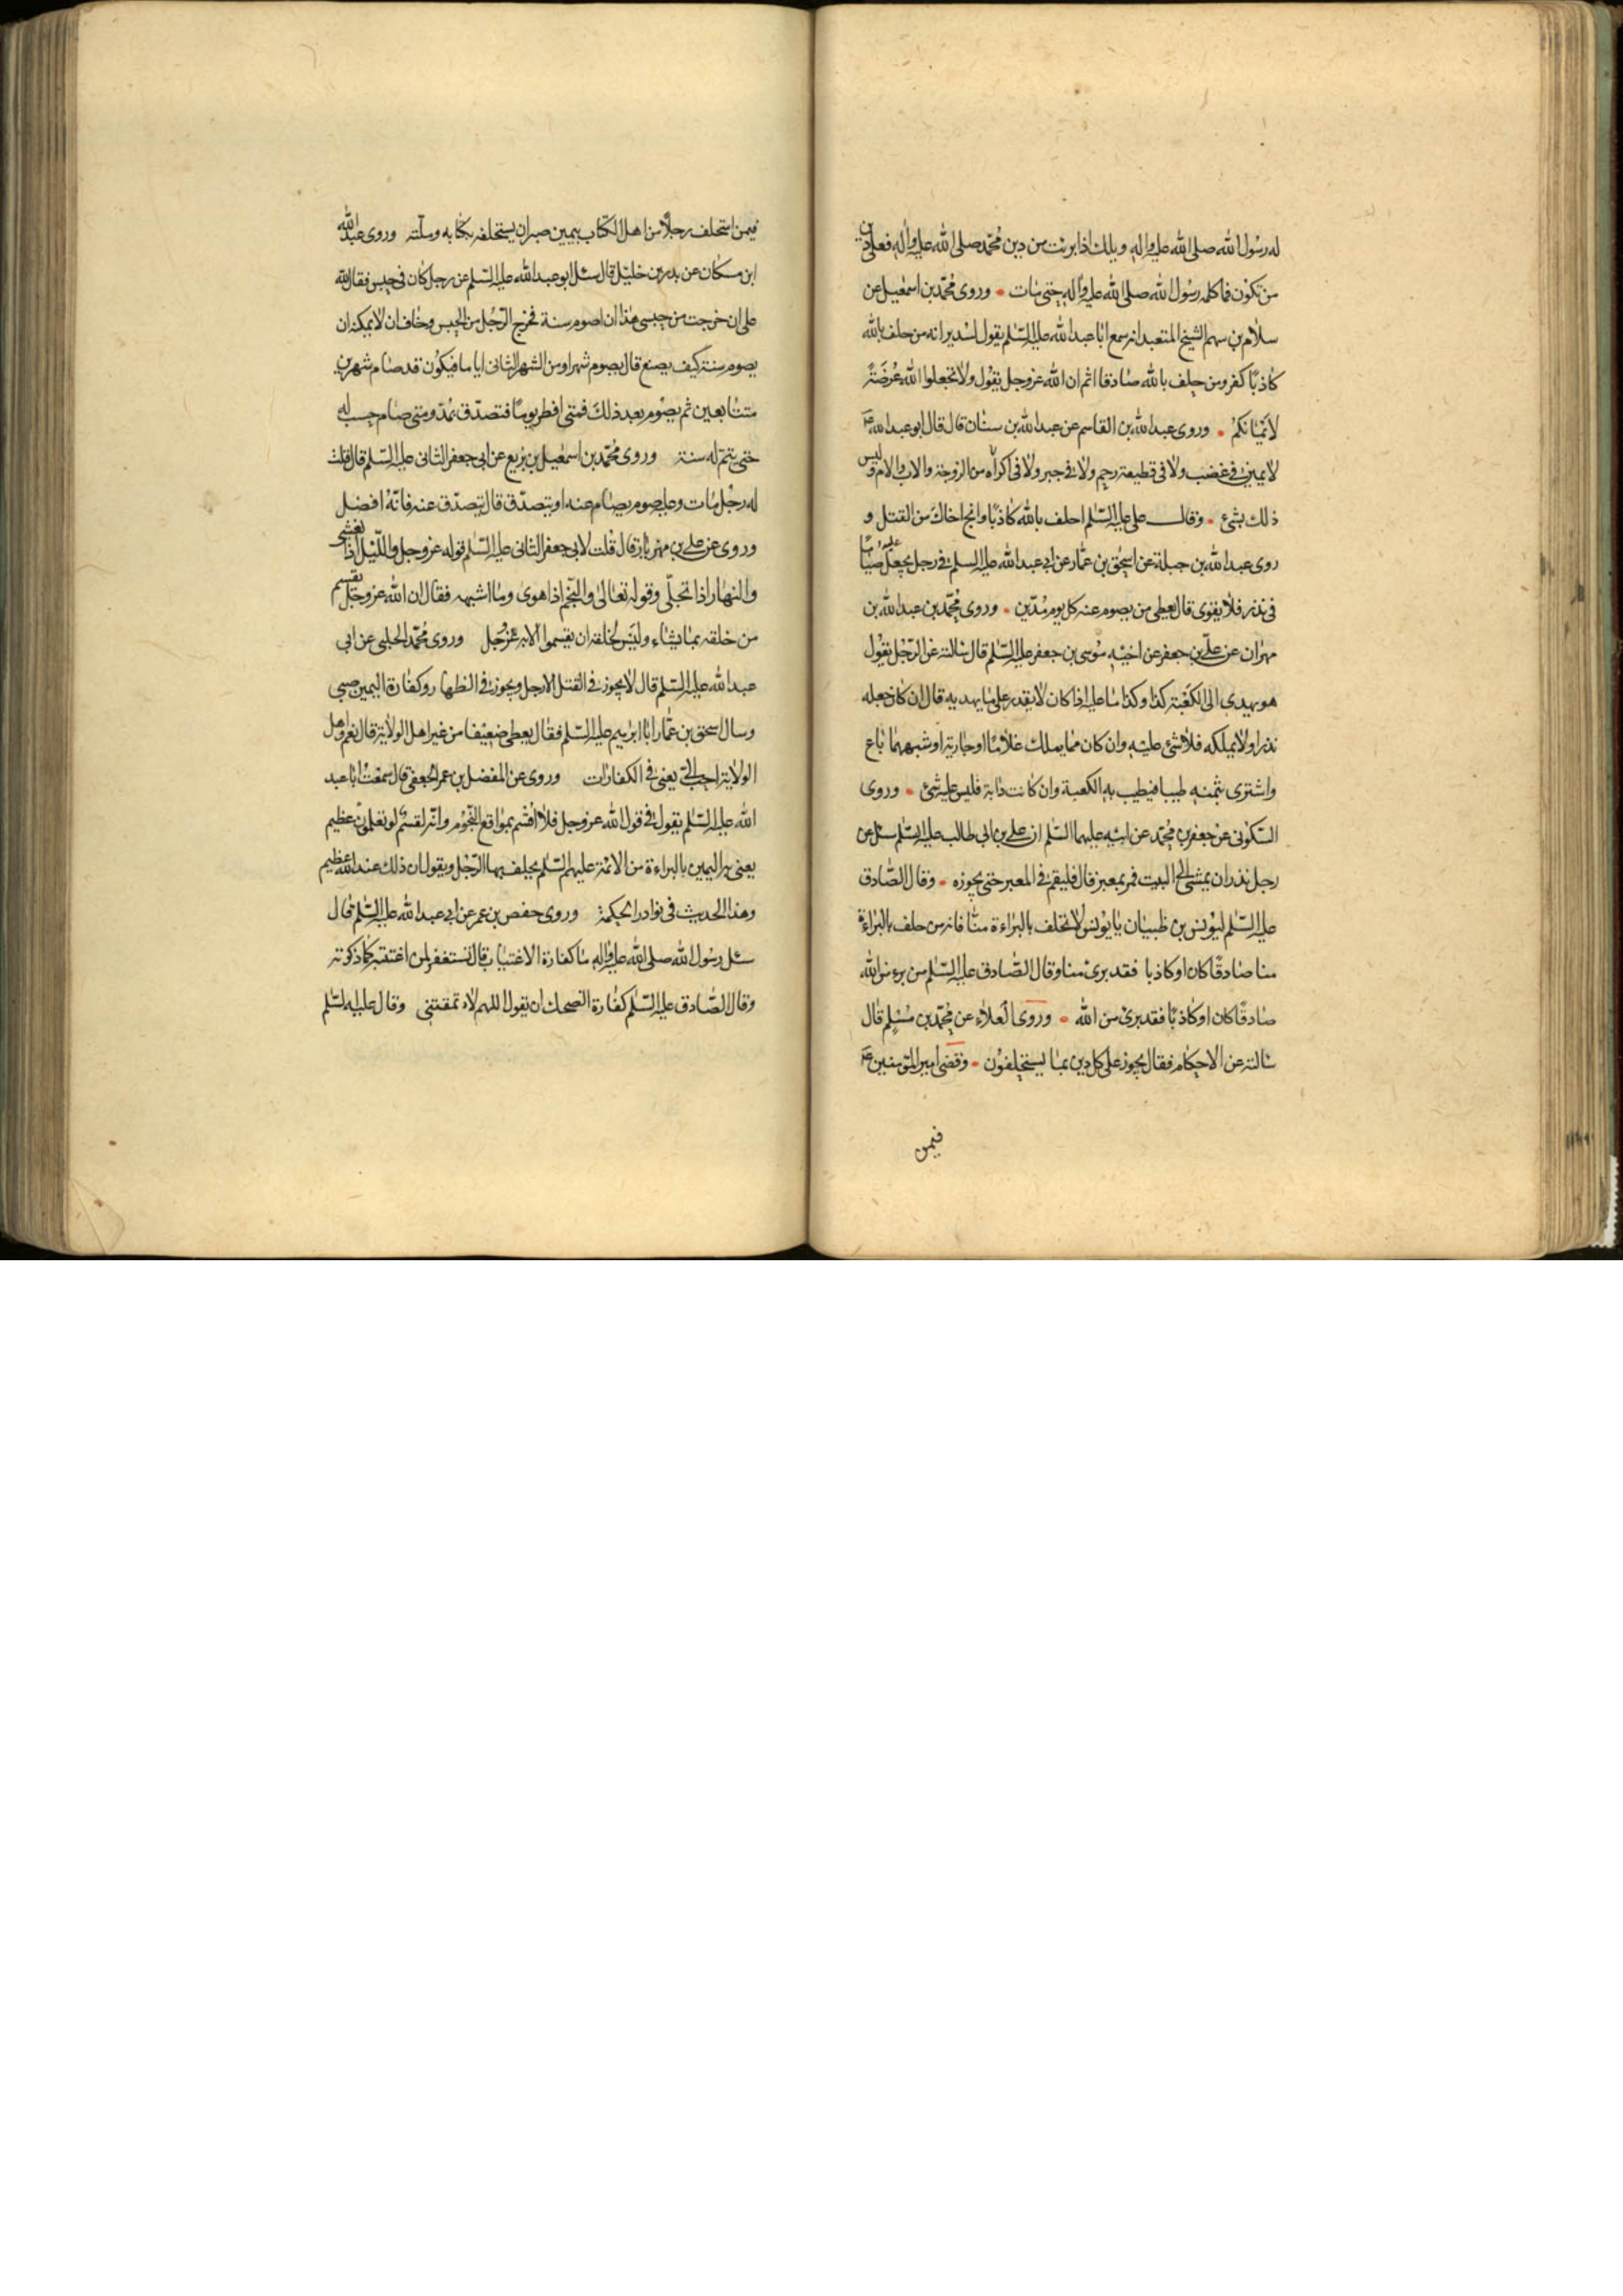 له رسول الله صلى الله عليه واله ويلك اذا برئت من دين محمد صلى الله عليه واله فعلى دين
من تكون فما كلمه رسول الله صلى الله عليه واله حتى مات وروى محمد بن اسمعيل عن
سلام بن سهم الشيخ المتعبد انه سمع ابا عبد الله عليه السلم يقول لسدير انه من حلف بالله
كاذبا كفر ومن حلف بالله صادقا اثم ان الله عز وجل يقول ولا تجعلوا الله عرضة
لايمانكم وروى عبد الله بن القاسم عن عبد الله بن سنان قال قال ابو عبد الله ع
لا يمين في غضب ولا في قطيعة رحم ولا في جبر ولا في اكراه من الزوجة والاب والام وليس
ذلك بشئ وقال على عليه السلم احلف بالله كاذبا وانج اخاك من القتل و
روى عبد الله بن جبلة عن اسحق بن عمار عن ابي عبد الله عليه السلم في رجل يجعل عليه صياما
في نذر فلا يقوى قال يعطى من يصوم عنه كل يوم مدين وروى محمد بن عبد الله بن
مهران عن علي بن جعفر عن اخيه موسى بن جعفر عليه السلم قال سالته عن الرجل يقول
هو يهدى الى الكعبة كذا وكذا ما عليه اذا كان لا يقدر على ما يهديه قال ان كان جعله
نذرا ولا يملكه فلا شئ عليه وان كان مما يملك غلاما او جارية او شبههما باع
واشترى بثمنه طيبا فيطيب به الكعبة وان كانت دابة فليس عليه شئ وروى
السكونى عن جعفر بن محمد عن ابيه عليهما السلم ان علي بن ابي طالب عليه السلم سئل عن
رجل نذر ان يمشى الى البيت فمر بمعبر قال فليقم في المعبر حتى يجوزه وقال الصادق
عليه السلم ليونس بن ظبيان يا يونس لا تحلف بالبراءة منا فانه من حلف بالبراءة
منا صادقا كان او كاذبا فقد برئ منا وقال الصادق عليه السلم من برء من الله
صادقا كان او كاذبا فقد برئ من الله وروى العلاء عن محمد بن مسلم قال
سالته عن الاحكام فقال يجوز على كل دين بما يستحلفون وقضى امير المؤمنين ع
فيمن
فيمن استحلف رجلا من اهل الكتاب بيمين صبر ان يستحلفه بكتابه وملته وروى عبد الله
ابن مسكان عن بدر بن خليل قال سئل ابو عبد الله عليه السلم عن رجل كان في حبس فقال لله
على ان خرجت من حبسى هذا ان اصوم سنة فخرج الرجل من الحبس وخاف ان لا يمكنه ان
يصوم سنة كيف يصنع قال يصوم شهرا ومن الشهر الثانى اياما فيكون قد صام شهرين
متتابعين ثم يصوم بعد ذلك فمتى افطر يوما فتصدق بمد ومتى صام حسب له
حتى يتم له سنة وروى محمد بن اسمعيل بن بزيع عن ابي جعفر الثانى عليه السلم قال قلت
له رجل مات وعليه صوم يصام عنه او يتصدق قال يتصدق عنه فانه افضل
وروى عن علي بن مهزيار قال قلت لابي جعفر الثانى عليه السلم قوله عز وجل والليل اذا يغشى
والنهار اذا تجلى وقوله تعالى والنجم اذا هوى وما اشبهه فقال ان الله عز وجل يقسم
من خلقه بما يشاء وليس لخلقه ان يقسموا الا به عز وجل وروى محمد الحلبى عن ابي
عبد الله عليه السلم قال لا يجوز في القتل الا رجل ويجوز في الظهار وكفارة اليمين صبى
وسال اسحق بن عمار ابا ابرهيم عليه السلم فقال يعطى ضعيفا من غير اهل الولاية قال نعم واهل
الولاية احب الى يعنى في الكفارات وروى عن المفضل بن عمر الجعفى قال سمعت ابا عبد
الله عليه السلم يقول في قول الله عز وجل فلا اقسم بمواقع النجوم وانه لقسم لو تعلمون عظيم
يعنى به اليمين بالبراءة من الائمة عليهم السلم يحلف بها الرجل ويقول ان ذلك عند الله عظيم
وهذا الحديث في نوادر الحكمة وروى حفص بن عمر عن ابي عبد الله عليه السلم قال
سئل رسول الله صلى الله عليه واله ما كفارة الاغتياب قال تستغفر لمن اغتبته كما ذكرته
وقال الصادق عليه السلم كفارة الضحك ان يقول اللهم لا تمقتنى وقال عليه السلم